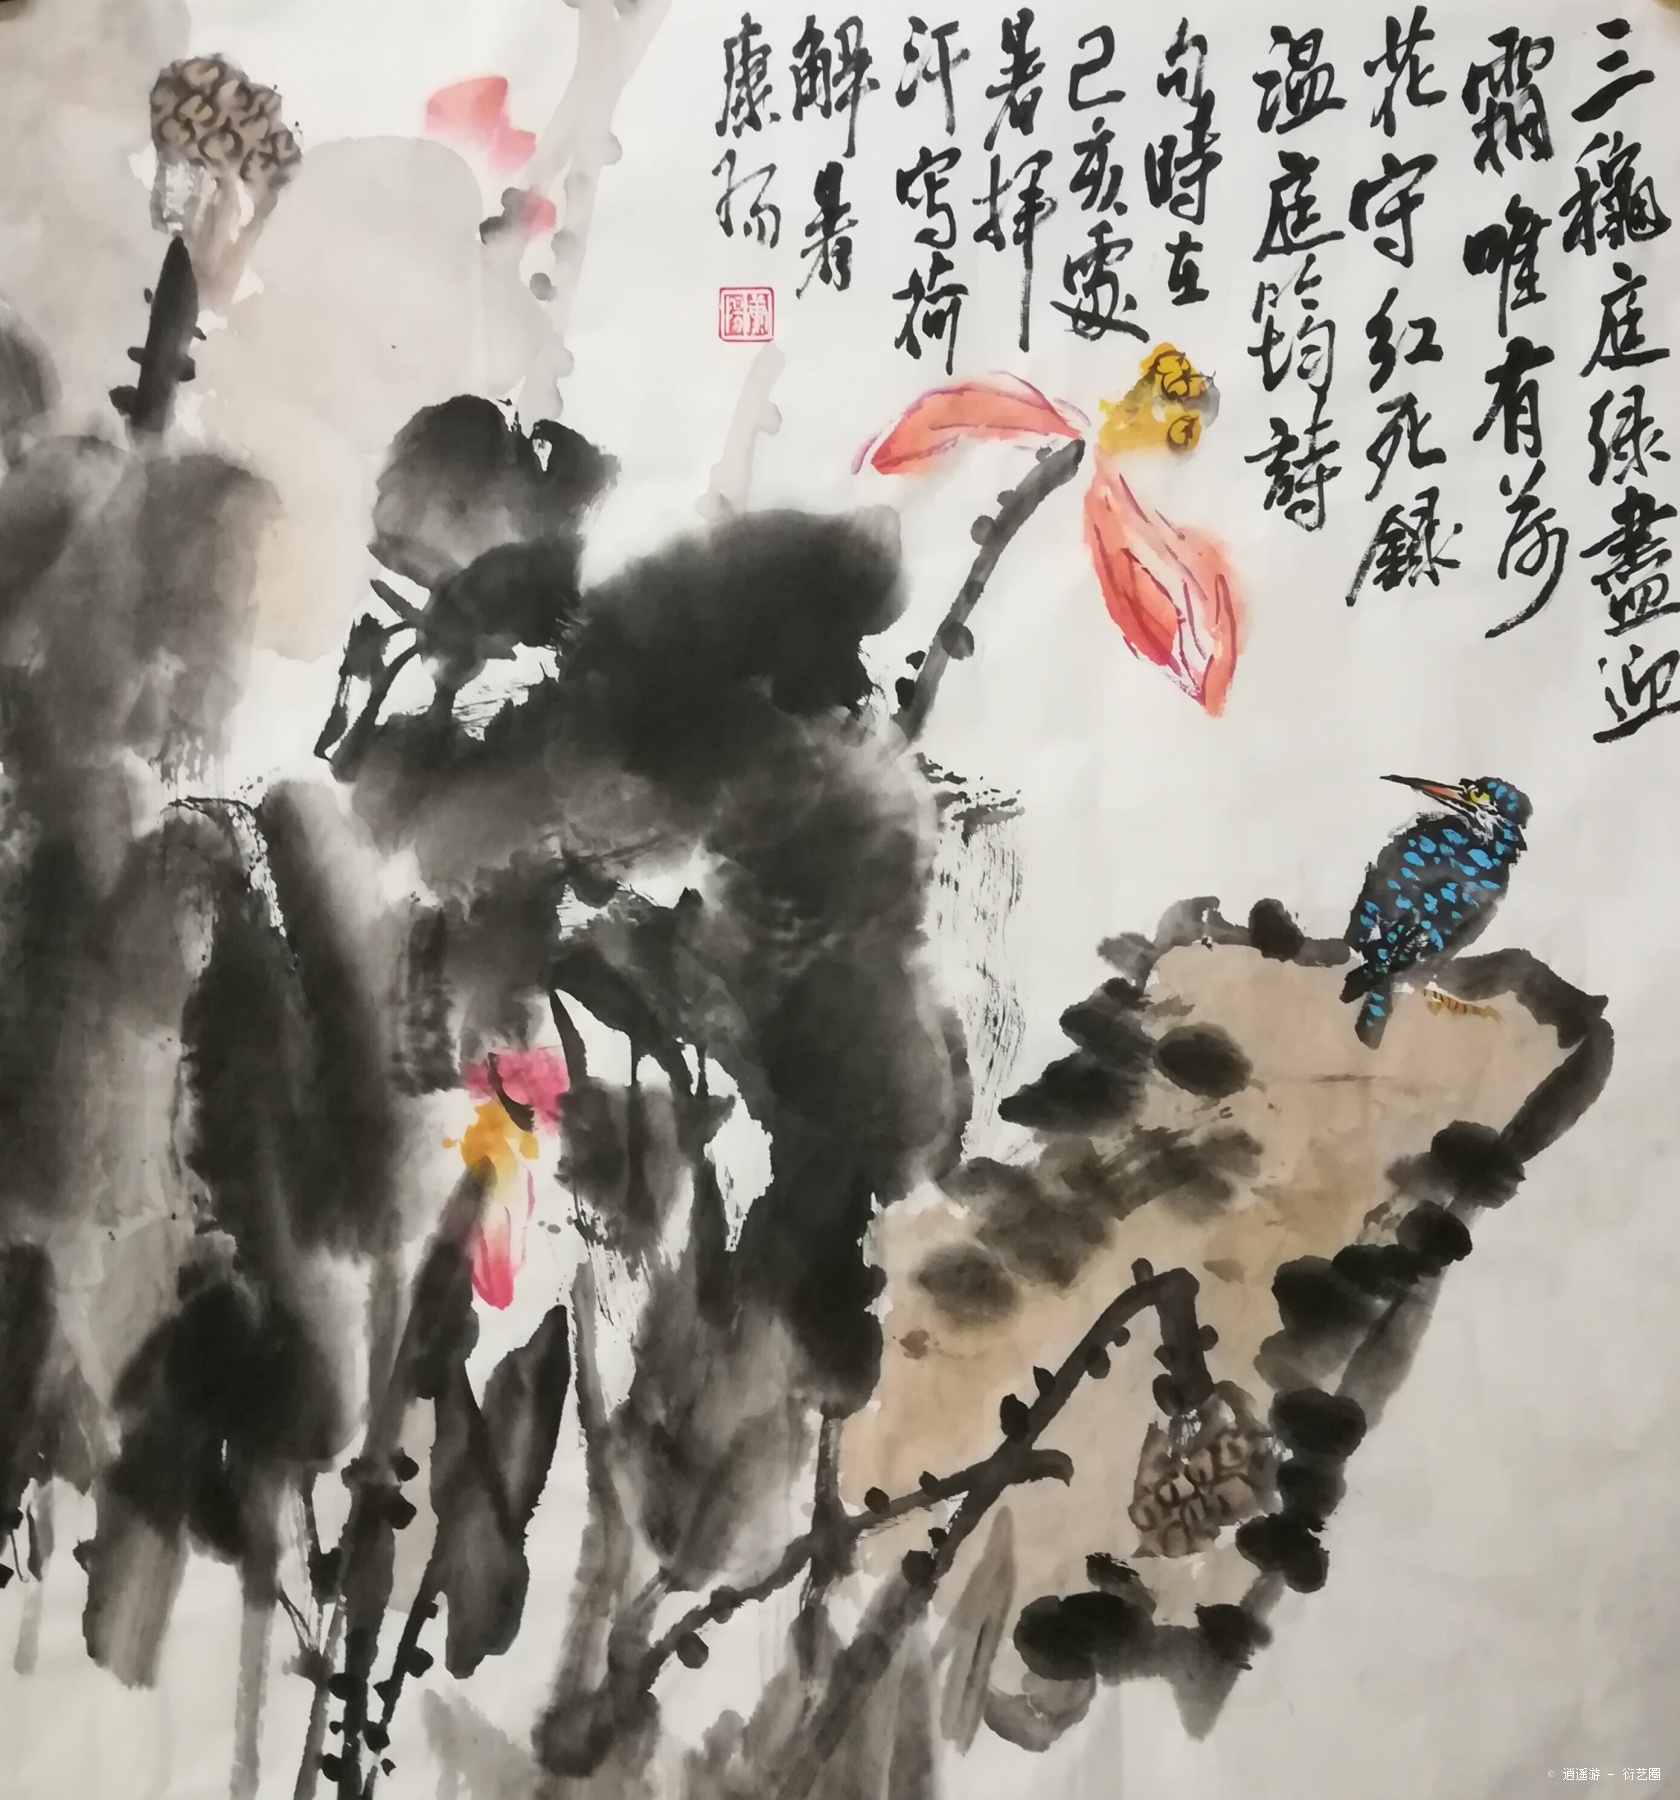 三穐庭绿盡迎
霜唯有荷
花守红死錄
温庭筠詩
句時在
己亥處
暑揮
汗寫荷
解暑
康扬
© 逍遥游 - 衍艺圈